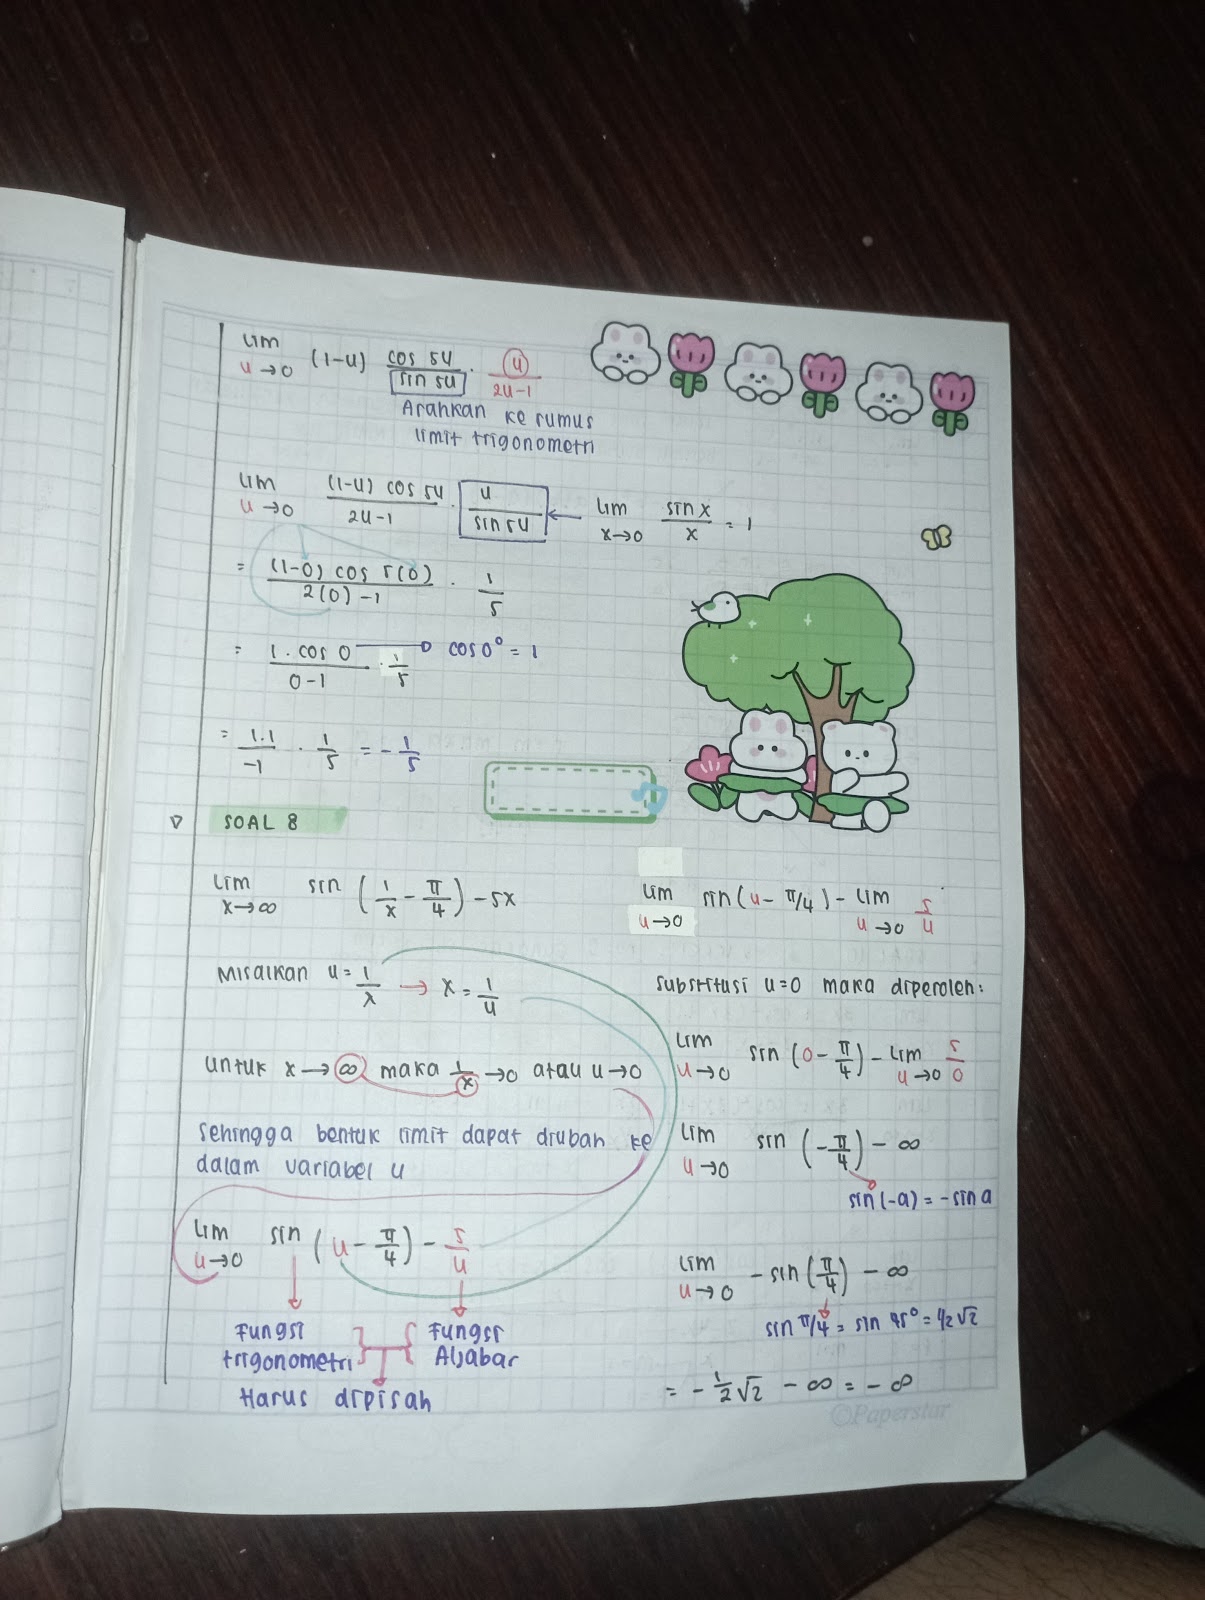 lim u→0 (1-u) cos 5u / sin 5u · u / 2u-1
Arahkan ke rumus
limit trigonometri
lim u→0 (1-u) cos 5u / 2u-1 · u / sin 5u ← lim x→0 sin x / x = 1
= (1-0) cos 5(0) / 2(0)-1 · 1/5
= 1 . cos 0 / 0-1 · 1/5 → cos 0° = 1
= 1.1 / -1 · 1/5 = -1/5
▷ SOAL 8
lim x→∞ sin (1/x - π/4) - 5x
Misalkan u = 1/x → x = 1/u
untuk x → ∞ maka 1/x → 0 atau u → 0
sehingga bentuk limit dapat diubah ke
dalam variabel u
lim u→0 sin (u - π/4) - 5/u
Fungsi
trigonometri
Fungsi
Aljabar
Harus dipisah
lim u→0 sin(u - π/4) - lim u→0 5/u
substitusi u=0 maka diperoleh:
lim u→0 sin (0 - π/4) - lim u→0 5/0
lim u→0 sin (-π/4) - ∞
sin(-a) = -sin a
lim u→0 -sin (π/4) - ∞
sin π/4 = sin 45° = 1/2√2
= -1/2√2 - ∞ = -∞
©Paperstar